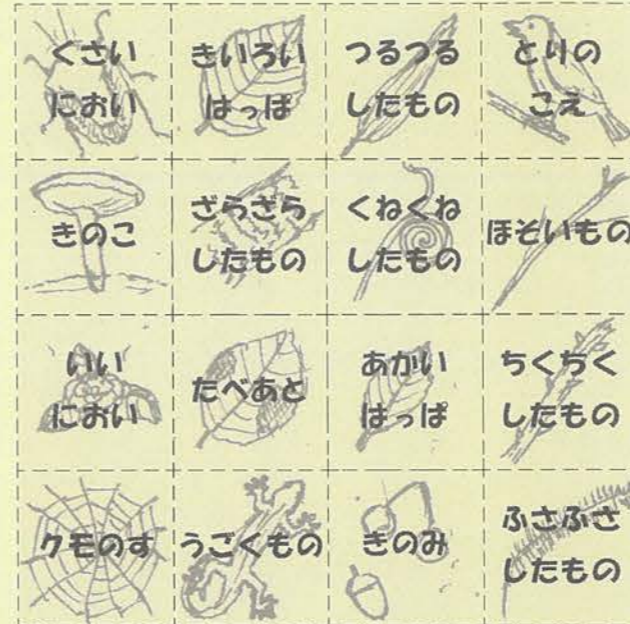 くさい
におい
きいろい
はっぱ
つるつる
したもの
とりの
こえ
きのこ
ざらざら
したもの
くねくね
したもの
ほそいもの
いい
におい
たべあと
あかい
はっぱ
ちくちく
したもの
クモのす
うごくもの
きのみ
ふさふさ
したもの